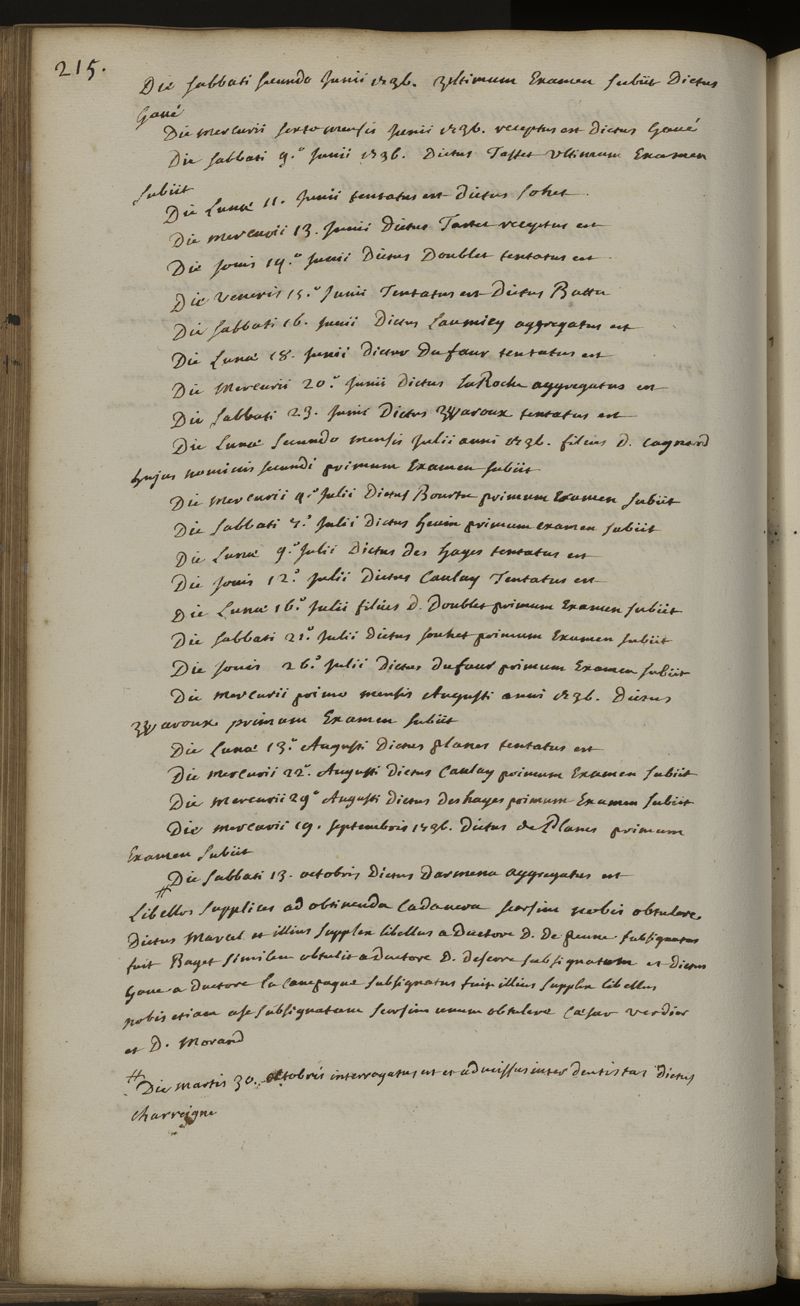 215.
Die sabbati secundo Junii 1736. Ultimum Examen subiit Dictus
Goué
Die mercurii sexto mensis Junii 1736. receptus est dictus Goué
Die sabbati 9.° Junii 1736. Dictus Tastet Ultimum Examen
subiit
Die Lunæ 11. Junii tentatus est dictus Sohet.
Die mercurii 13. Junii dictus Tastet receptus est
Die Jovis 14.° Junii Dictus Doublet tentatus est
Die Veneris 15.° Junii Tentatus est Dictus
Die sabbati 16. Junii Dictus Laumiey aggregatus est
Die Lunæ 18. Junii dictus Dufaur tentatus est
Die Mercurii 20.° Junii dictus LaRoche aggregatus est
Die sabbati 23. Junii Dictus tentatus est
Die Lunæ Secundo mensis Julii anni 1736. filius D. Cagnard
hujus nominis secundi primum Examen subiit
Die Mercurii 4.° Julii Dictus primum Examen subiit
Die sabbati 7.° Julii dictus hevin primum examen subiit
Die Lunæ 9.° Julii Dictus des hayes tentatus est
Die Jovis 12.° Julii Dictus Caulay Tentatus est
Die Lunæ 16.° Julii filius D. Doublet primum Examen subiit
Die sabbati 21.° Julii dictus souhet primum Examen subiit
Die Jovis 26.° Julii Dictus dufaur primum Examen subiit
Die mercurii primo mensis Augusti anni 1736. dictus
primum Examen subiit
Die Lunæ 13.° Augusti Dictus planes tentatus est
Die mercurii 22.° Augusti dictus Caulay primum Examen subiit
Die mercurii 29.° Augusti dictus Deshayes primum Examen subiit
Die mercurii 19. septembris 1736. dictus de Planes primum
Examen subiit
Die sabbati 13. octobris Dictus Darmena aggregatus est
#
Libellos supplices ad obtinenda Cadavera seorsim nobis obtulere
Dictus Marcel et illius supplex libellus a Doctore D. de Jeune subsignatus
fuit Baget similem obtulit a Doctore D. subsignatum et dictus
Goue a Doctore La Campagne subsignatus fuit illius supplex libellus
nobis etiam a se subsignatum seorsim unum obtulere Cæsar Verdier
et D. Morand
# Die martis 30. octobris interrogatus est et admissus inter dentistas dictus
Charreigne